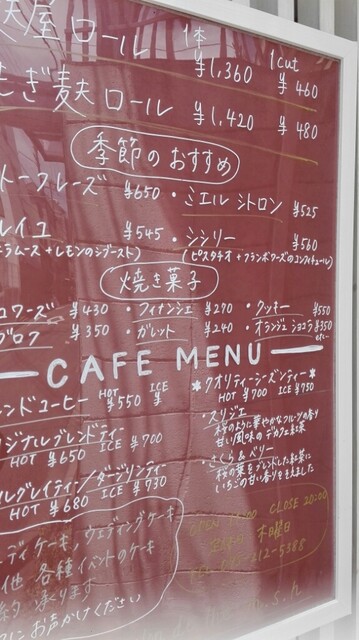 屋ロール 1本 1cut
¥1,360 ¥460
ぎ麩ロール ¥1,420 ¥480
季節のおすすめ
トークレーズ ¥650 ・ミエル シトロン ¥525
レイユ ¥545 ・シシリー ¥560
ムース+レモンのシブースト) (ピスタチオ+フランボワーズのコンフィチュール)
焼き菓子
ロワーズ ¥430 ・フィナンシェ ¥270 ・クッキー ¥550
ブロク ¥350 ・ガレット ¥240 ・オランジェショコラ ¥350
etc~
CAFE MENU
ンドコーヒー HOT ¥550 ICE ¥
ジナルブレンドティー
HOT ¥650 ICE ¥700
ルグレイティー/ダージリンティー
HOT ¥680 ICE ¥730
*クオリティーシーズンティー*
HOT ¥700 ICE ¥750
・スリジエ
桜のように華やかなフルーツの香り
甘い風味のデカフェ紅茶
・さくら&ベリー
桜の葉をブレンドした紅茶に
いちごの甘い香りをそえました
ディケーキ、ウェディングケーキ
他 各種イベントのケーキ
約 承ります
にお声かけください
OPEN CLOSE 20:00
定休日 木曜日
212-5388